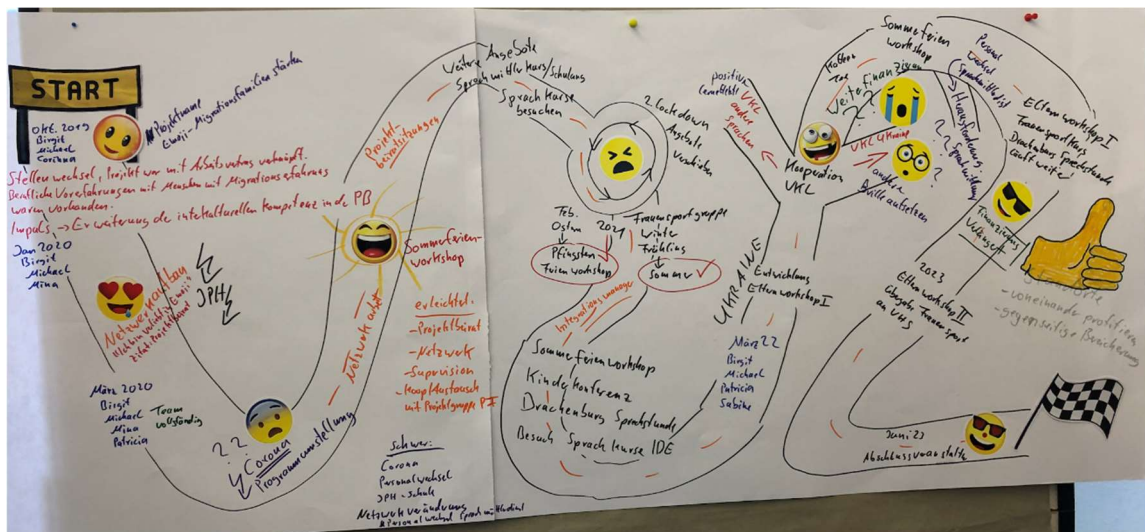 START
Okt. 2019
Birgit
Michael
Corinna
Projektname
Emii-Migrationsfamilien stärken
Stellenwechsel, Projekt war mit Arbeitsvertrag verknüpft.
Berufliche Vorerfahrungen mit Menschen mit Migrationserfahrung
waren vorhanden.
Impuls → Erweiterung der interkulturellen Kompetenz in der PB
Jan 2020
Birgit
Michael
Mina
Netzwerkaufbau
"Ich bin verliebt in Emii"
JPH
März 2020
Birgit
Michael
Mina
Patricia
Team
vollständig
? ?
Corona
Programmumstellung
Netzwerkarbeit
Projekt-
beiratssitzungen
Sommerferien-
workshop
erleichtert:
- Projektbeirat
- Netzwerk
- Supervision
mit Projektgruppe
Schwer:
Corona
Personalwechsel
JPH - Schule
Netzwerkveränderung
Personalwechsel Sprachmittlerdienst
Weitere Angebote
Sprachmittlerkurs/Schulung
Sprachkurse
besuchen
2. Lockdown
Angebote
verschieben
Feb.
Ostern
↓
Pfingsten
Ferienworkshop
2021
Frauensportgruppe
Winter
Frühling
↓
Sommer
Integrationsmanager
Sommerferienworkshop
Kinderkonferenz
Drachenburg Sprachstunde
Besuch Sprachkurse IDE
UKRAINE
Entwicklung
Elternworkshop I
März 22
Birgit
Michael
Patricia
Sabine
positive
VKL
andere
sprachen
Kooperation
VKL
VKL Ukraine
andere
Brille aufsetzen
weiter Finanzierung
? ?
Sommerferien
workshop
Personal
wechsel
Sprachmittlerdienst
→ Herausforderung
? ? Sprachmittlung
Elternworkshop I
Frauensportkurs
Drachenburg Sprechstunde
läuft weiter!
Finanzierung
Verlängert
2023
Elternworkshop II
Übergabe Frauensport
an VHS
- voneinander profitieren
- gegenseitige Bereicherung
Juni 23
Abschlussveranstaltung